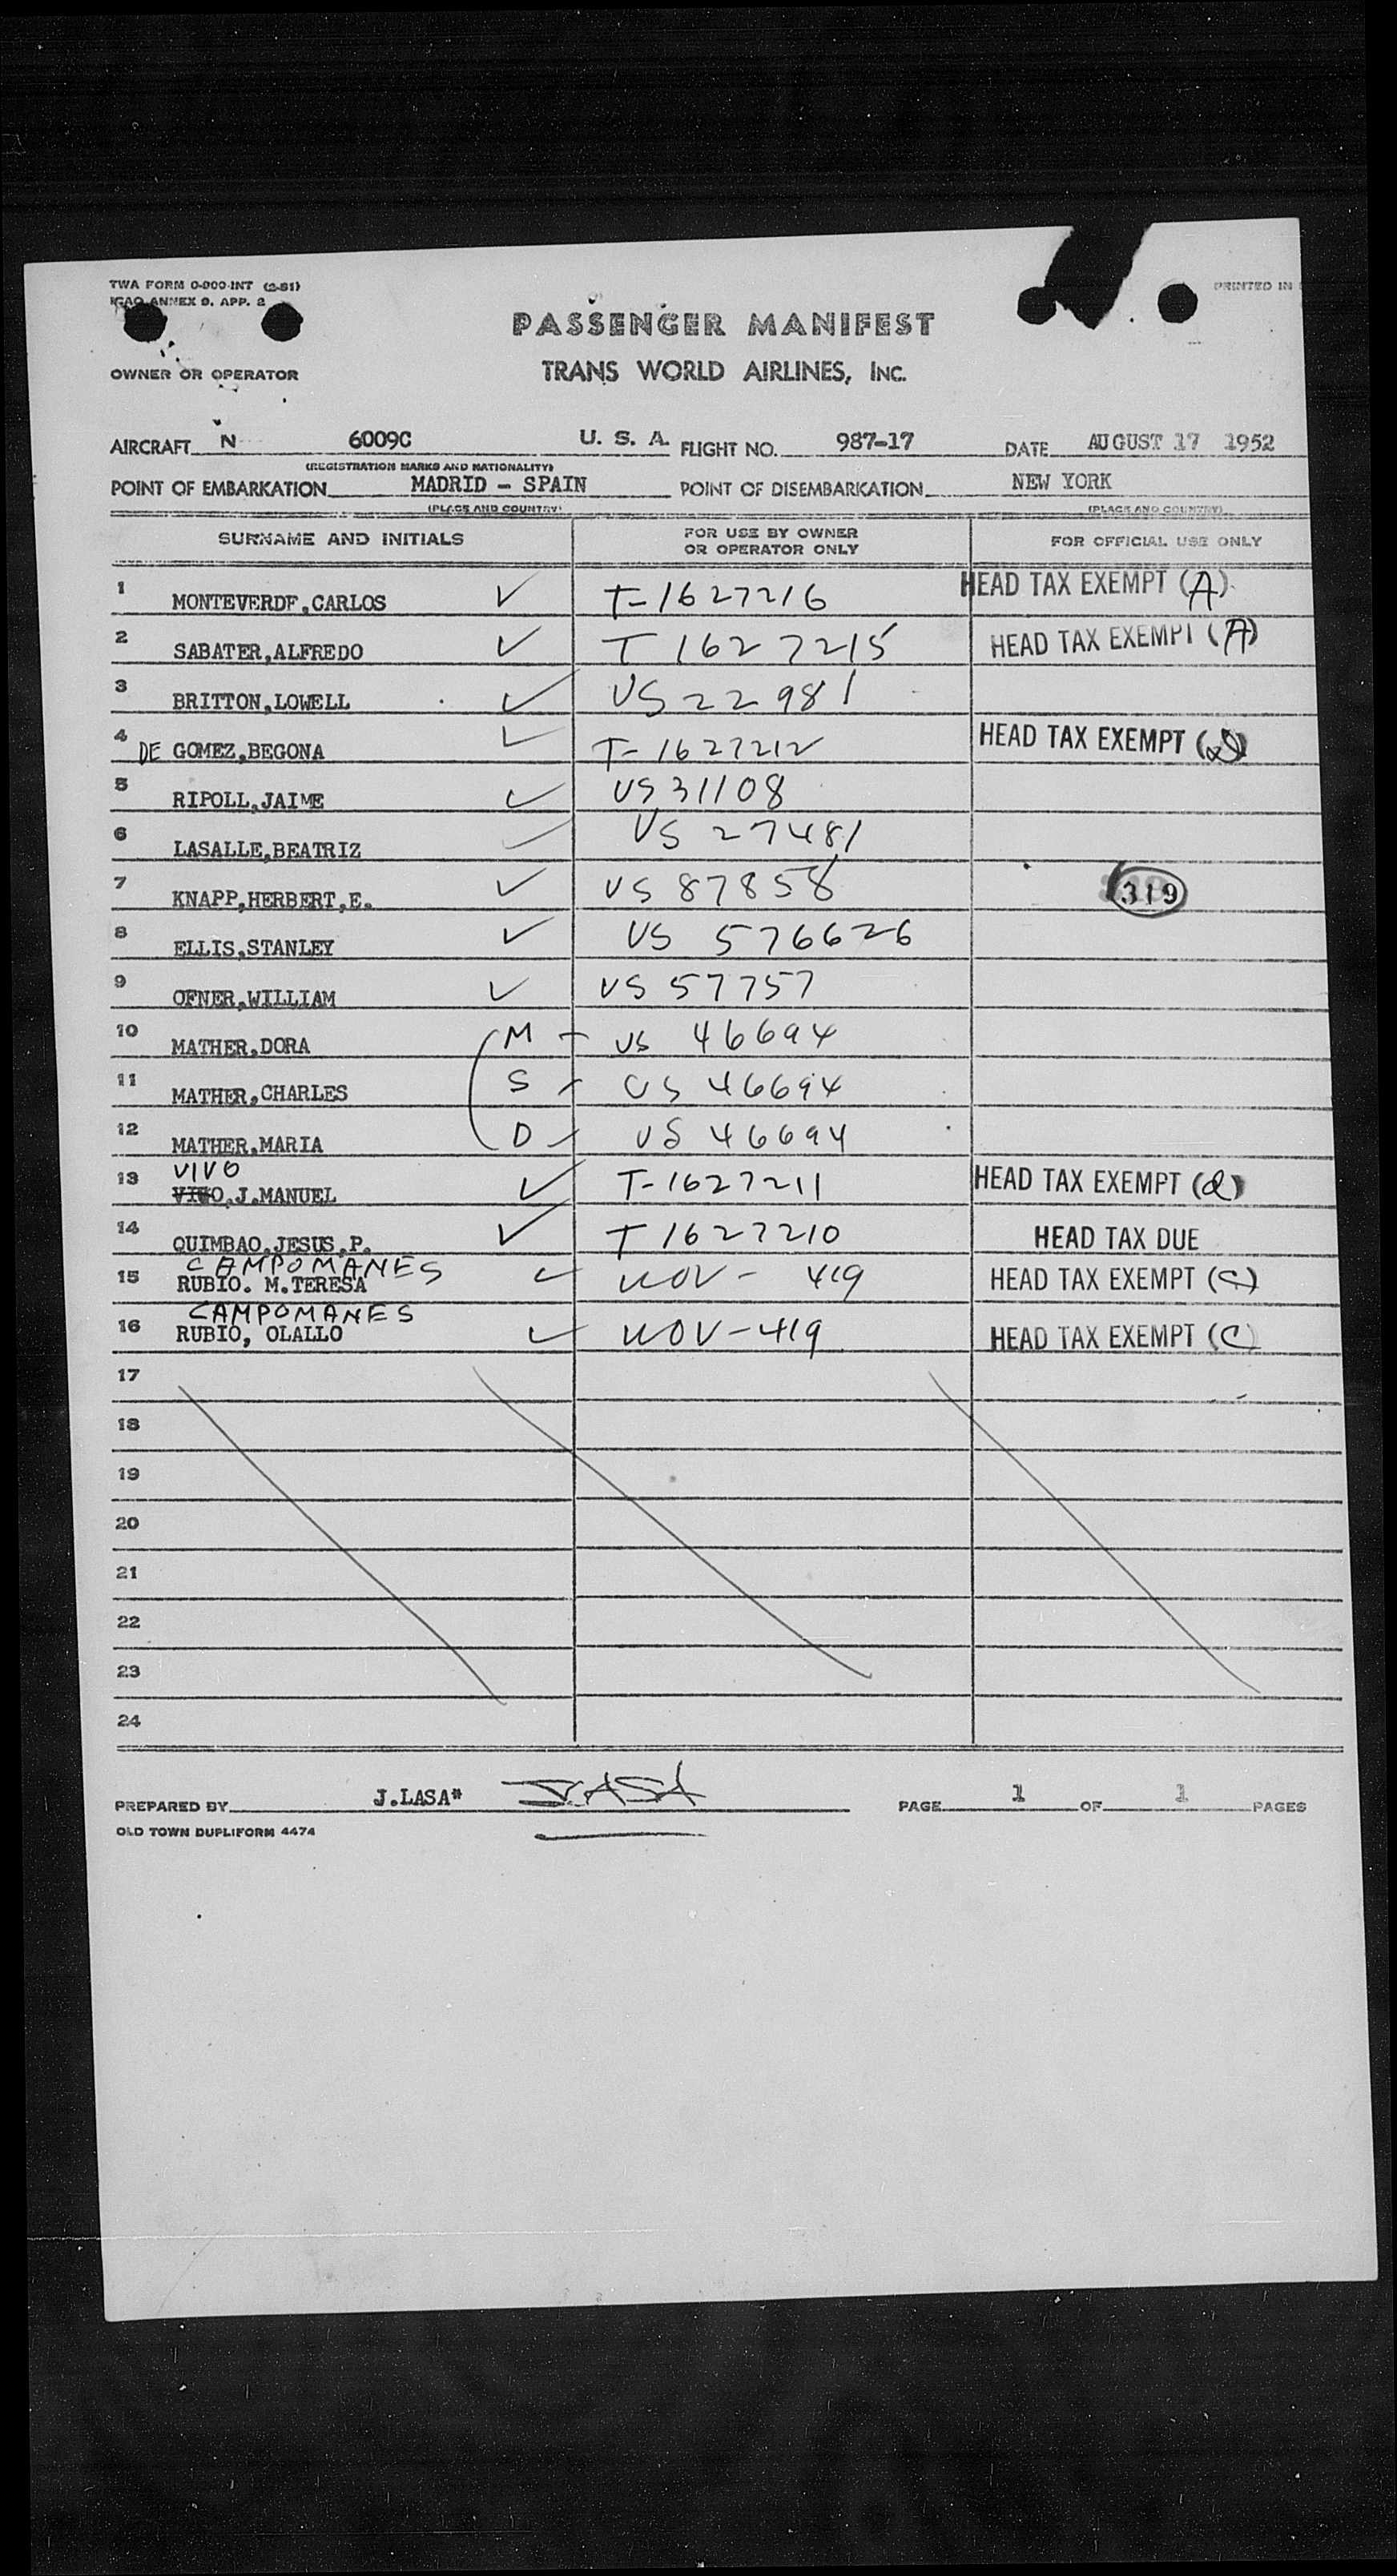 TWA FORM O-900-INT (2-51)
ICAO ANNEX 9. APP. 2
PRINTED IN
PASSENGER MANIFEST
OWNER OR OPERATOR TRANS WORLD AIRLINES, INC.
AIRCRAFT N 6009C U. S. A. FLIGHT NO. 987-17 DATE AUGUST 17 1952
(REGISTRATION MARKS AND NATIONALITY)
POINT OF EMBARKATION MADRID - SPAIN POINT OF DISEMBARKATION NEW YORK
(PLACE AND COUNTRY) (PLACE AND COUNTRY)
SURNAME AND INITIALS FOR USE BY OWNER OR OPERATOR ONLY FOR OFFICIAL USE ONLY
1 MONTEVERDE,CARLOS ✓ T-1627216 HEAD TAX EXEMPT (A)
2 SABATER,ALFREDO ✓ T 1627215 HEAD TAX EXEMPT (A)
3 BRITTON,LOWELL ✓ US 22981
4 DE GOMEZ,BEGONA ✓ T-1627212 HEAD TAX EXEMPT
5 RIPOLL,JAIME ✓ US 31108
6 LASALLE,BEATRIZ US 27481
7 KNAPP,HERBERT,E. ✓ US 87858 319
8 ELLIS,STANLEY ✓ US 576626
9 OFNER,WILLIAM ✓ US 57757
10 MATHER,DORA M - US 46694
11 MATHER,CHARLES S - US 46694
12 MATHER,MARIA D - US 46694
VIVO
13 J.MANUEL ✓ T-1627211 HEAD TAX EXEMPT (d)
14 QUIMBAO,JESUS,P. ✓ T 1627210 HEAD TAX DUE
CAMPOMANES
15 RUBIO. M.TERESA ✓ NOV - 419 HEAD TAX EXEMPT (C)
CAMPOMANES
16 RUBIO, OLALLO ✓ NOV-419 HEAD TAX EXEMPT (C)
17
18
19
20
21
22
23
24
PREPARED BY J.LASA* J.LASA PAGE 1 OF 1 PAGES
OLD TOWN DUPLIFORM 4474